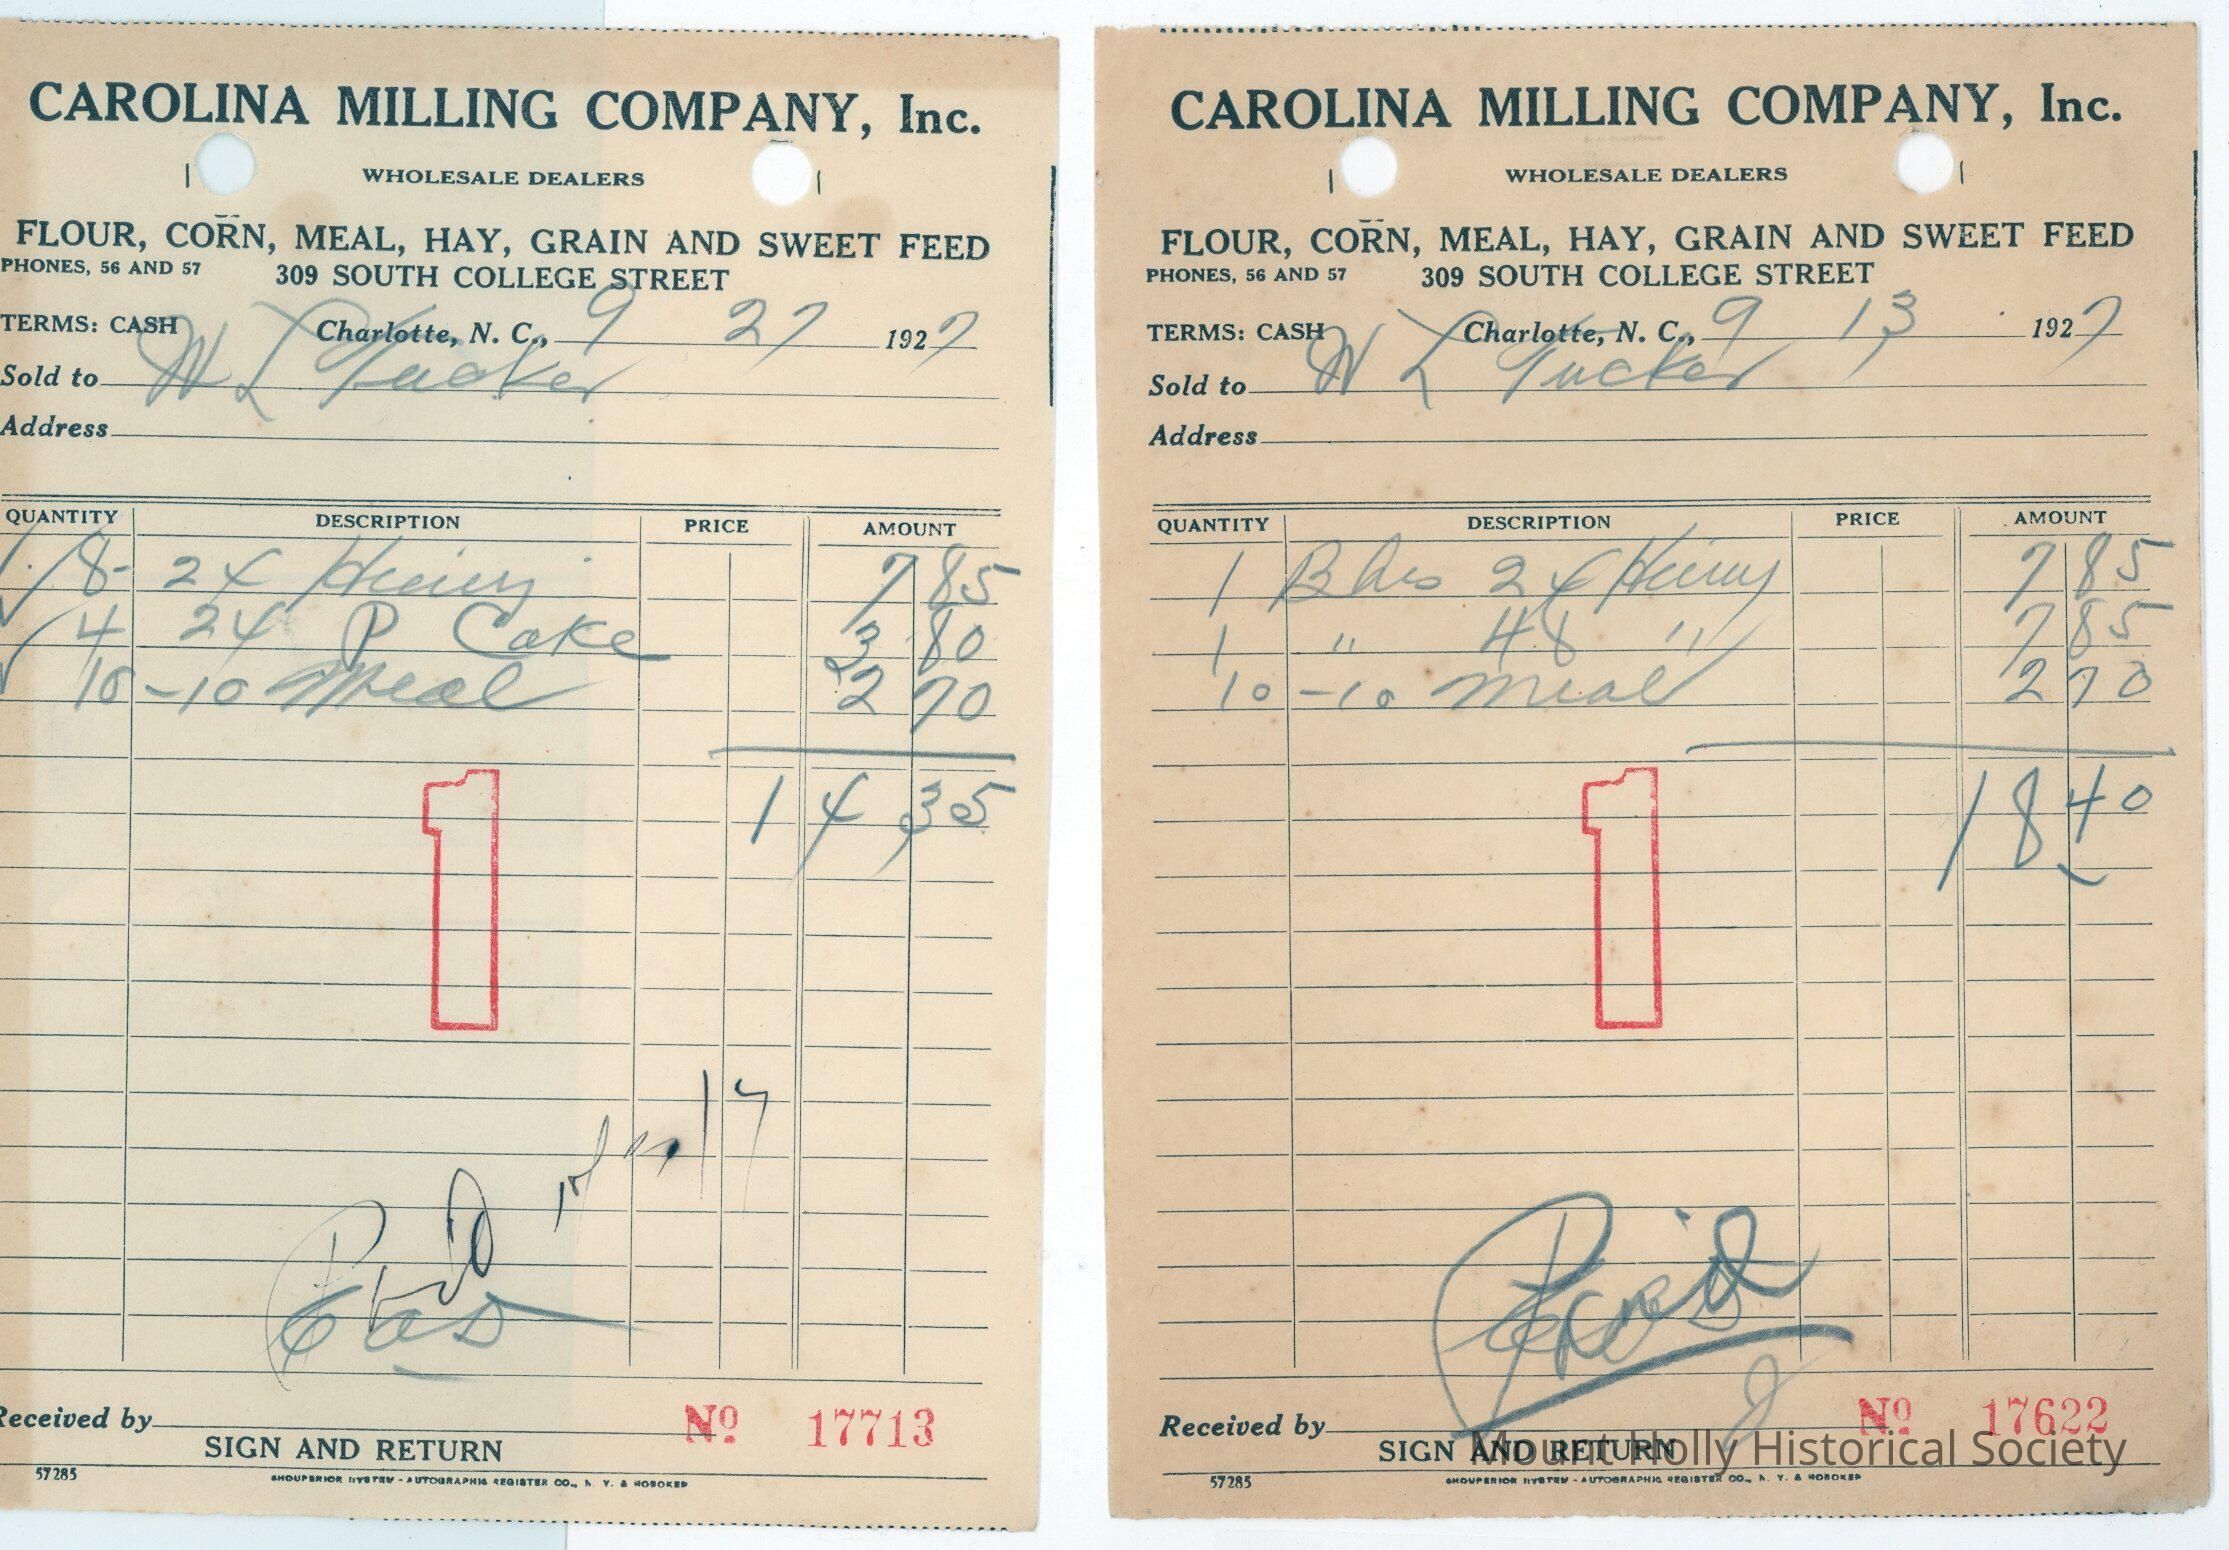 CAROLINA MILLING COMPANY, Inc.
WHOLESALE DEALERS
FLOUR, CORN, MEAL, HAY, GRAIN AND SWEET FEED
PHONES, 56 AND 57 309 SOUTH COLLEGE STREET
TERMS: CASH Charlotte, N. C., 9 27 1927
Sold to W L Tucker
Address
QUANTITY DESCRIPTION PRICE AMOUNT
8- 24 7 85
4 24 P Cake 3 80
10 -10 Meal 2 70
14 35
1
Received by
No 17713
SIGN AND RETURN
57285
SHOUPERIOR SYSTEM - AUTOGRAPHIC REGISTER CO., N. Y. & HOBOKEN
CAROLINA MILLING COMPANY, Inc.
WHOLESALE DEALERS
FLOUR, CORN, MEAL, HAY, GRAIN AND SWEET FEED
PHONES, 56 AND 57 309 SOUTH COLLEGE STREET
TERMS: CASH Charlotte, N. C., 9 13 1927
Sold to W L Tucker
Address
QUANTITY DESCRIPTION PRICE AMOUNT
1 Bbls 24 7 85
1 " 48 " 7 85
10 -10 Meal 2 70
18 40
1
Paid
Received by
No 17622
SIGN AND RETURN
Mount Holly Historical Society
57285
SHOUPERIOR SYSTEM - AUTOGRAPHIC REGISTER CO., N. Y. & HOBOKEN